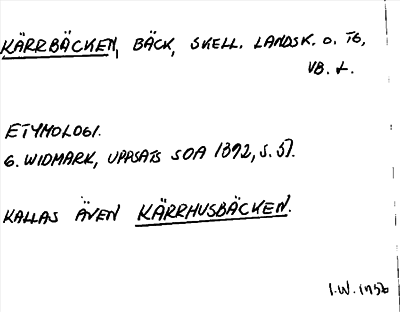 KÄRRBÄCKEN, BÄCK, SKELL. LANDSK. O. TG,
VB. L.
ETYMOLOGI.
G. WIDMARK, UPPSATS SOA 1392, S. 51.
KALLAS ÄVEN KÄRRHUSBÄCKEN.
I.W. 1956